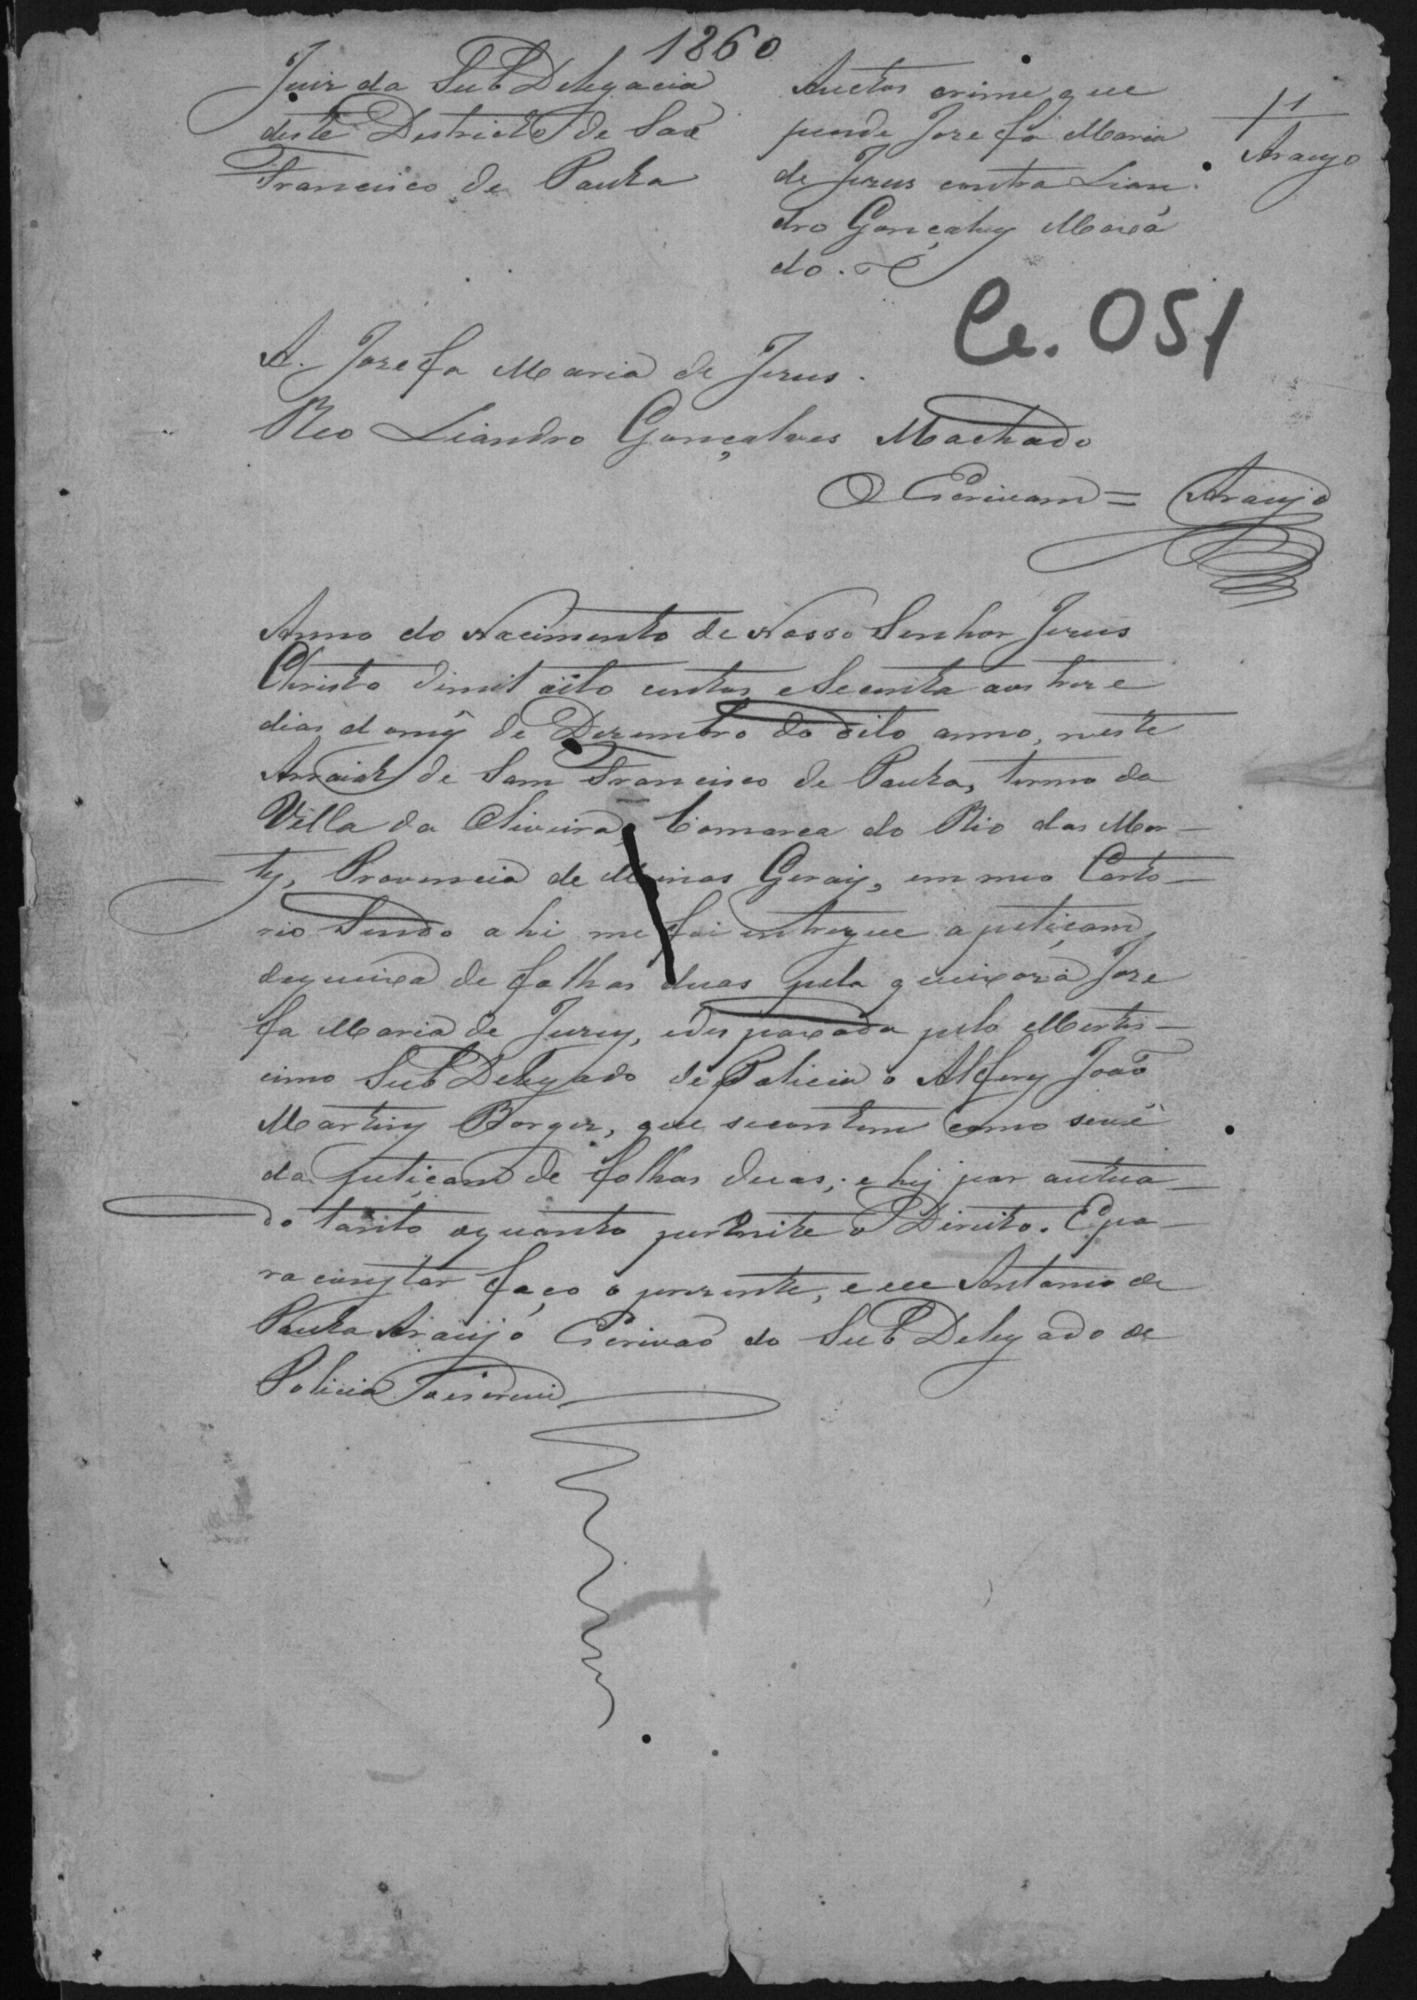 1860
Juiz da Sub Delegacia
deste Districto de Saõ
Francisco de Paula
Auctos crime que
pende Jozefa Maria
de Jezus contra Lian
dro Gonçalvey Maxa
do.
fl 1
Araujo
Ce. 051
A. Jozefa Maria de Jezus.
Reo Liandro Gonçalves Machado
O Escrivam = Araujo
Anno do Nacimento de Nosso Senhor Jezus
Christo dimil oito centos e Secenta aos treze
dias do mes de Dezembro do dito anno, neste
Arraial de Sam Francisco de Paula, termo da
Villa da Oliveira, Comarca do Rio das Mor-
tes, Provincia de Minas Geraiz, em meo Carto-
rio Sendo ahi me foi intregue a petiçam
dequeixa de folhas duas pela queixoza Joze
fa Maria de Jezuz, e des paxada pelo Meretis-
cimo Sub Delegado de Policia o Alferz João
Martinz Borges, que secontem como sevê
da petiçam de folhas duas; e hey por autua-
do tanto oquanto permite o Direito. Epa-
ra conztar faço o prezente, e eu Antonio de
Paula Araujo Escrivaõ do Sub Delegado de
Policia oescrevi